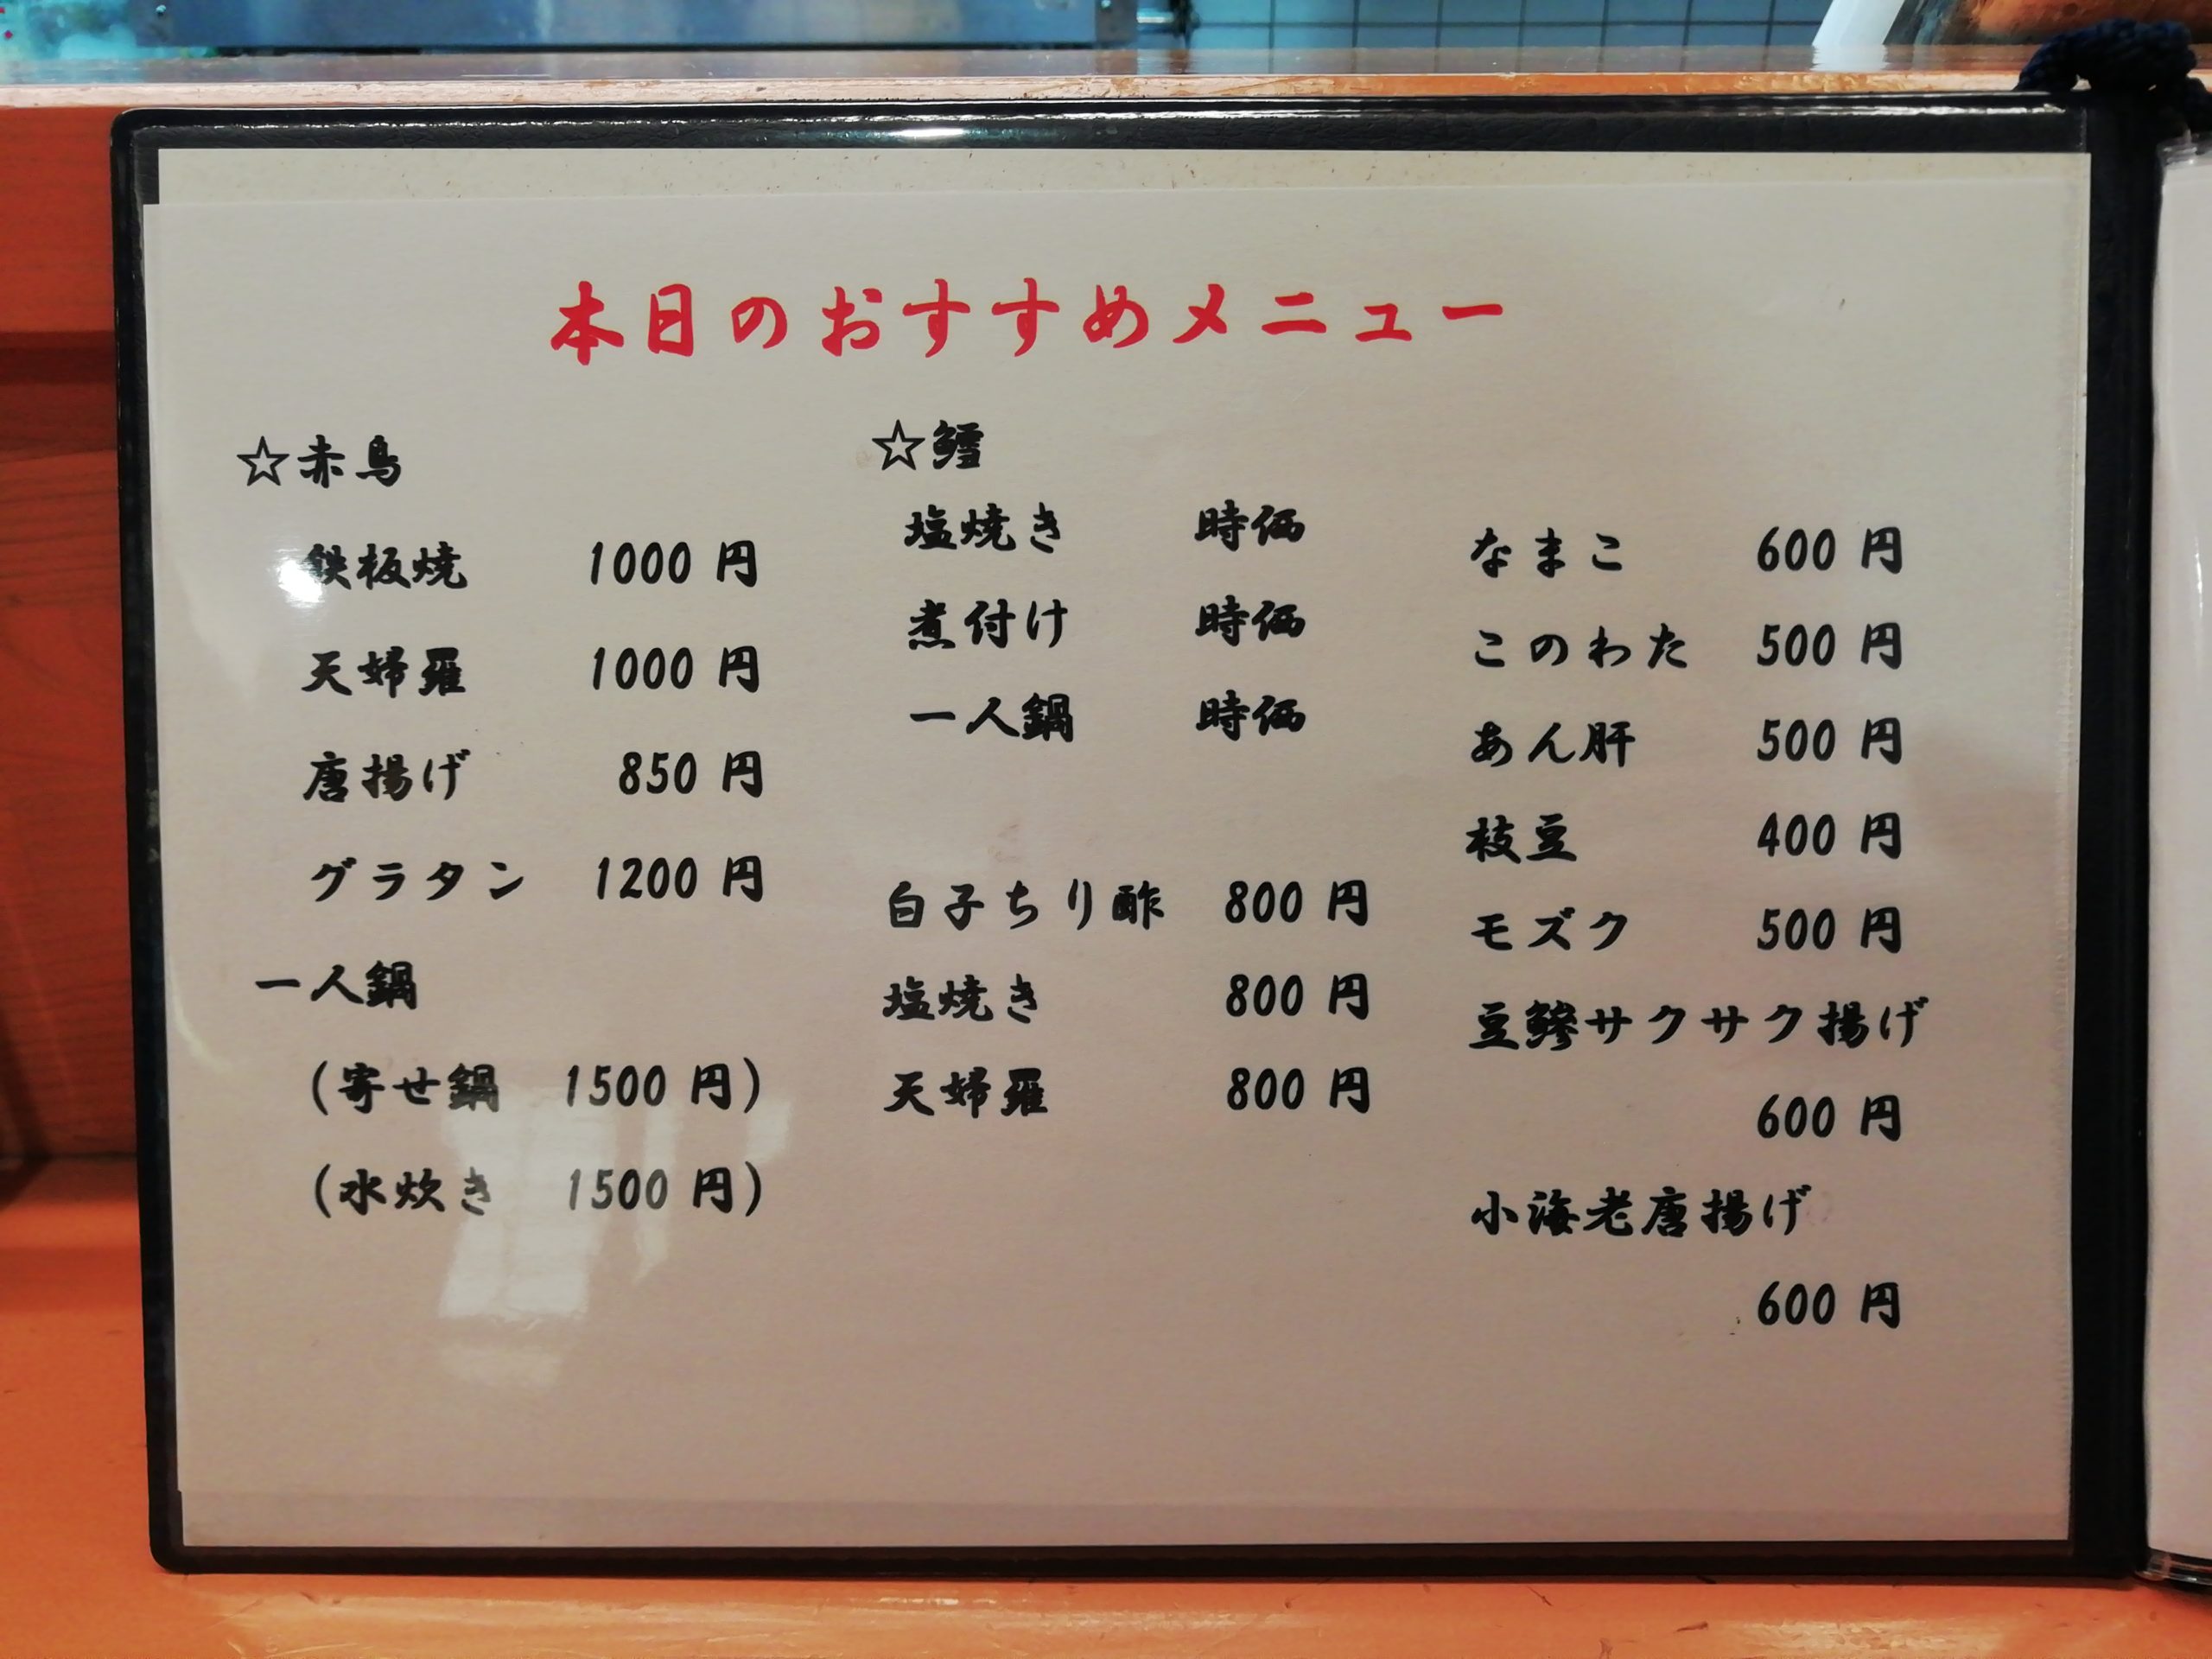 本日のおすすめメニュー
☆赤鳥
鉄板焼 1000円
天婦羅 1000円
唐揚げ 850円
グラタン 1200円
一人鍋
(寄せ鍋 1500円)
(水炊き 1500円)
☆鱈
塩焼き 時価
煮付け 時価
一人鍋 時価
白子ちり酢 800円
塩焼き 800円
天婦羅 800円
なまこ 600円
このわた 500円
あん肝 500円
枝豆 400円
モズク 500円
豆鯵サクサク揚げ
600円
小海老唐揚げ
600円